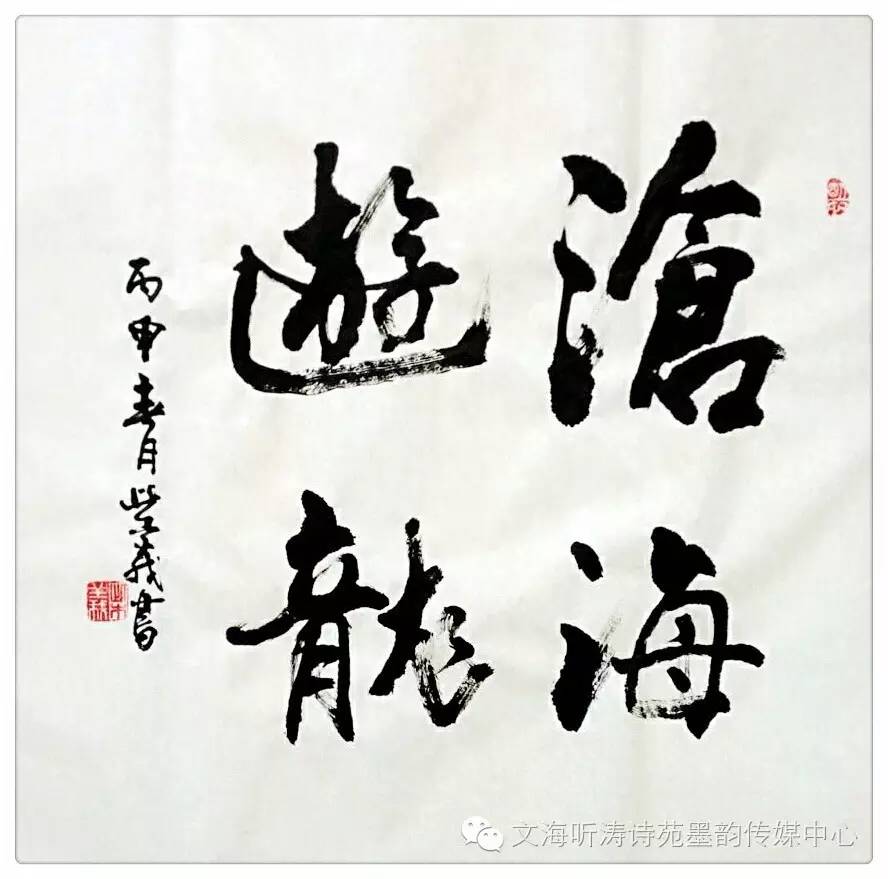 滄海
遊龍
丙申春月柴義書
文海听涛诗苑墨韵传媒中心